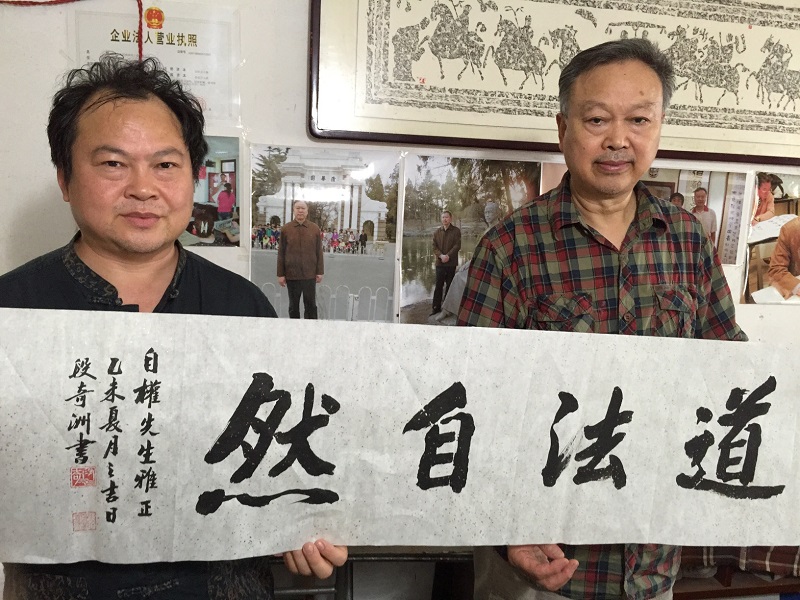 企业法人营业执照
道法自然
自權先生雅正
乙未夏月之吉日
段奇洲書